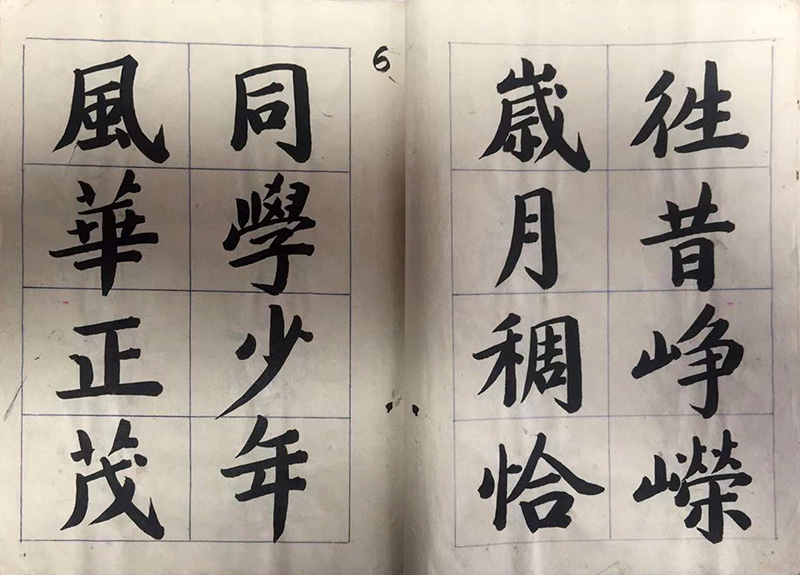 徃昔峥嶸
歲月稠恰
6
同學少年
風華正茂